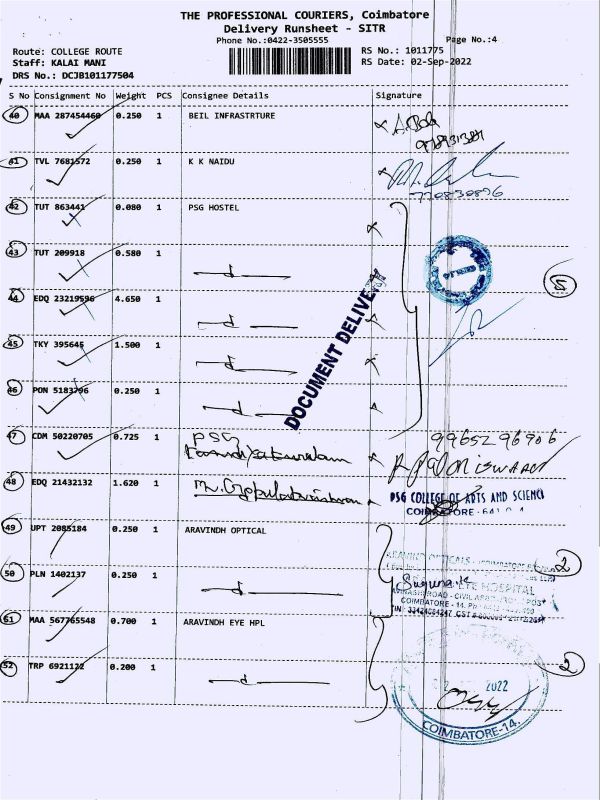 THE PROFESSIONAL COURIERS, Coimbatore
Delivery Runsheet - SITR
Phone No.:0422-3505555 Page No.:4
Route: COLLEGE ROUTE RS No.: 1011775
Staff: KALAI MANI RS Date: 02-Sep-2022
DRS No.: DCJB101177504
S No Consignment No Weight PCS Consignee Details Signature
40 MAA 287454460 0.250 1 BEIL INFRASTRTURE
41 TVL 7681572 0.250 1 K K NAIDU
42 TUT 863441 0.080 1 PSG HOSTEL
43 TUT 209918 0.580 1
44 EDQ 23219596 4.650 1
45 TKY 395645 1.500 1
46 PON 5183796 0.250 1
DOCUMENT DELIVERY
5
9965296906
47 CDM 50220705 0.725 1 PSG
48 EDQ 21432132 1.620 1
PSG COLLEGE OF ARTS AND SCIENCE
COIMBATORE - 641
49 UPT 2085184 0.250 1 ARAVINDH OPTICAL
2
50 PLN 1402137 0.250 1
Suguna.K
HOSPITAL
COIMBATORE - 14.
51 MAA 567765548 0.700 1 ARAVINDH EYE HPL
52 TRP 6921122 0.200 1
2
2022
COIMBATORE-14.